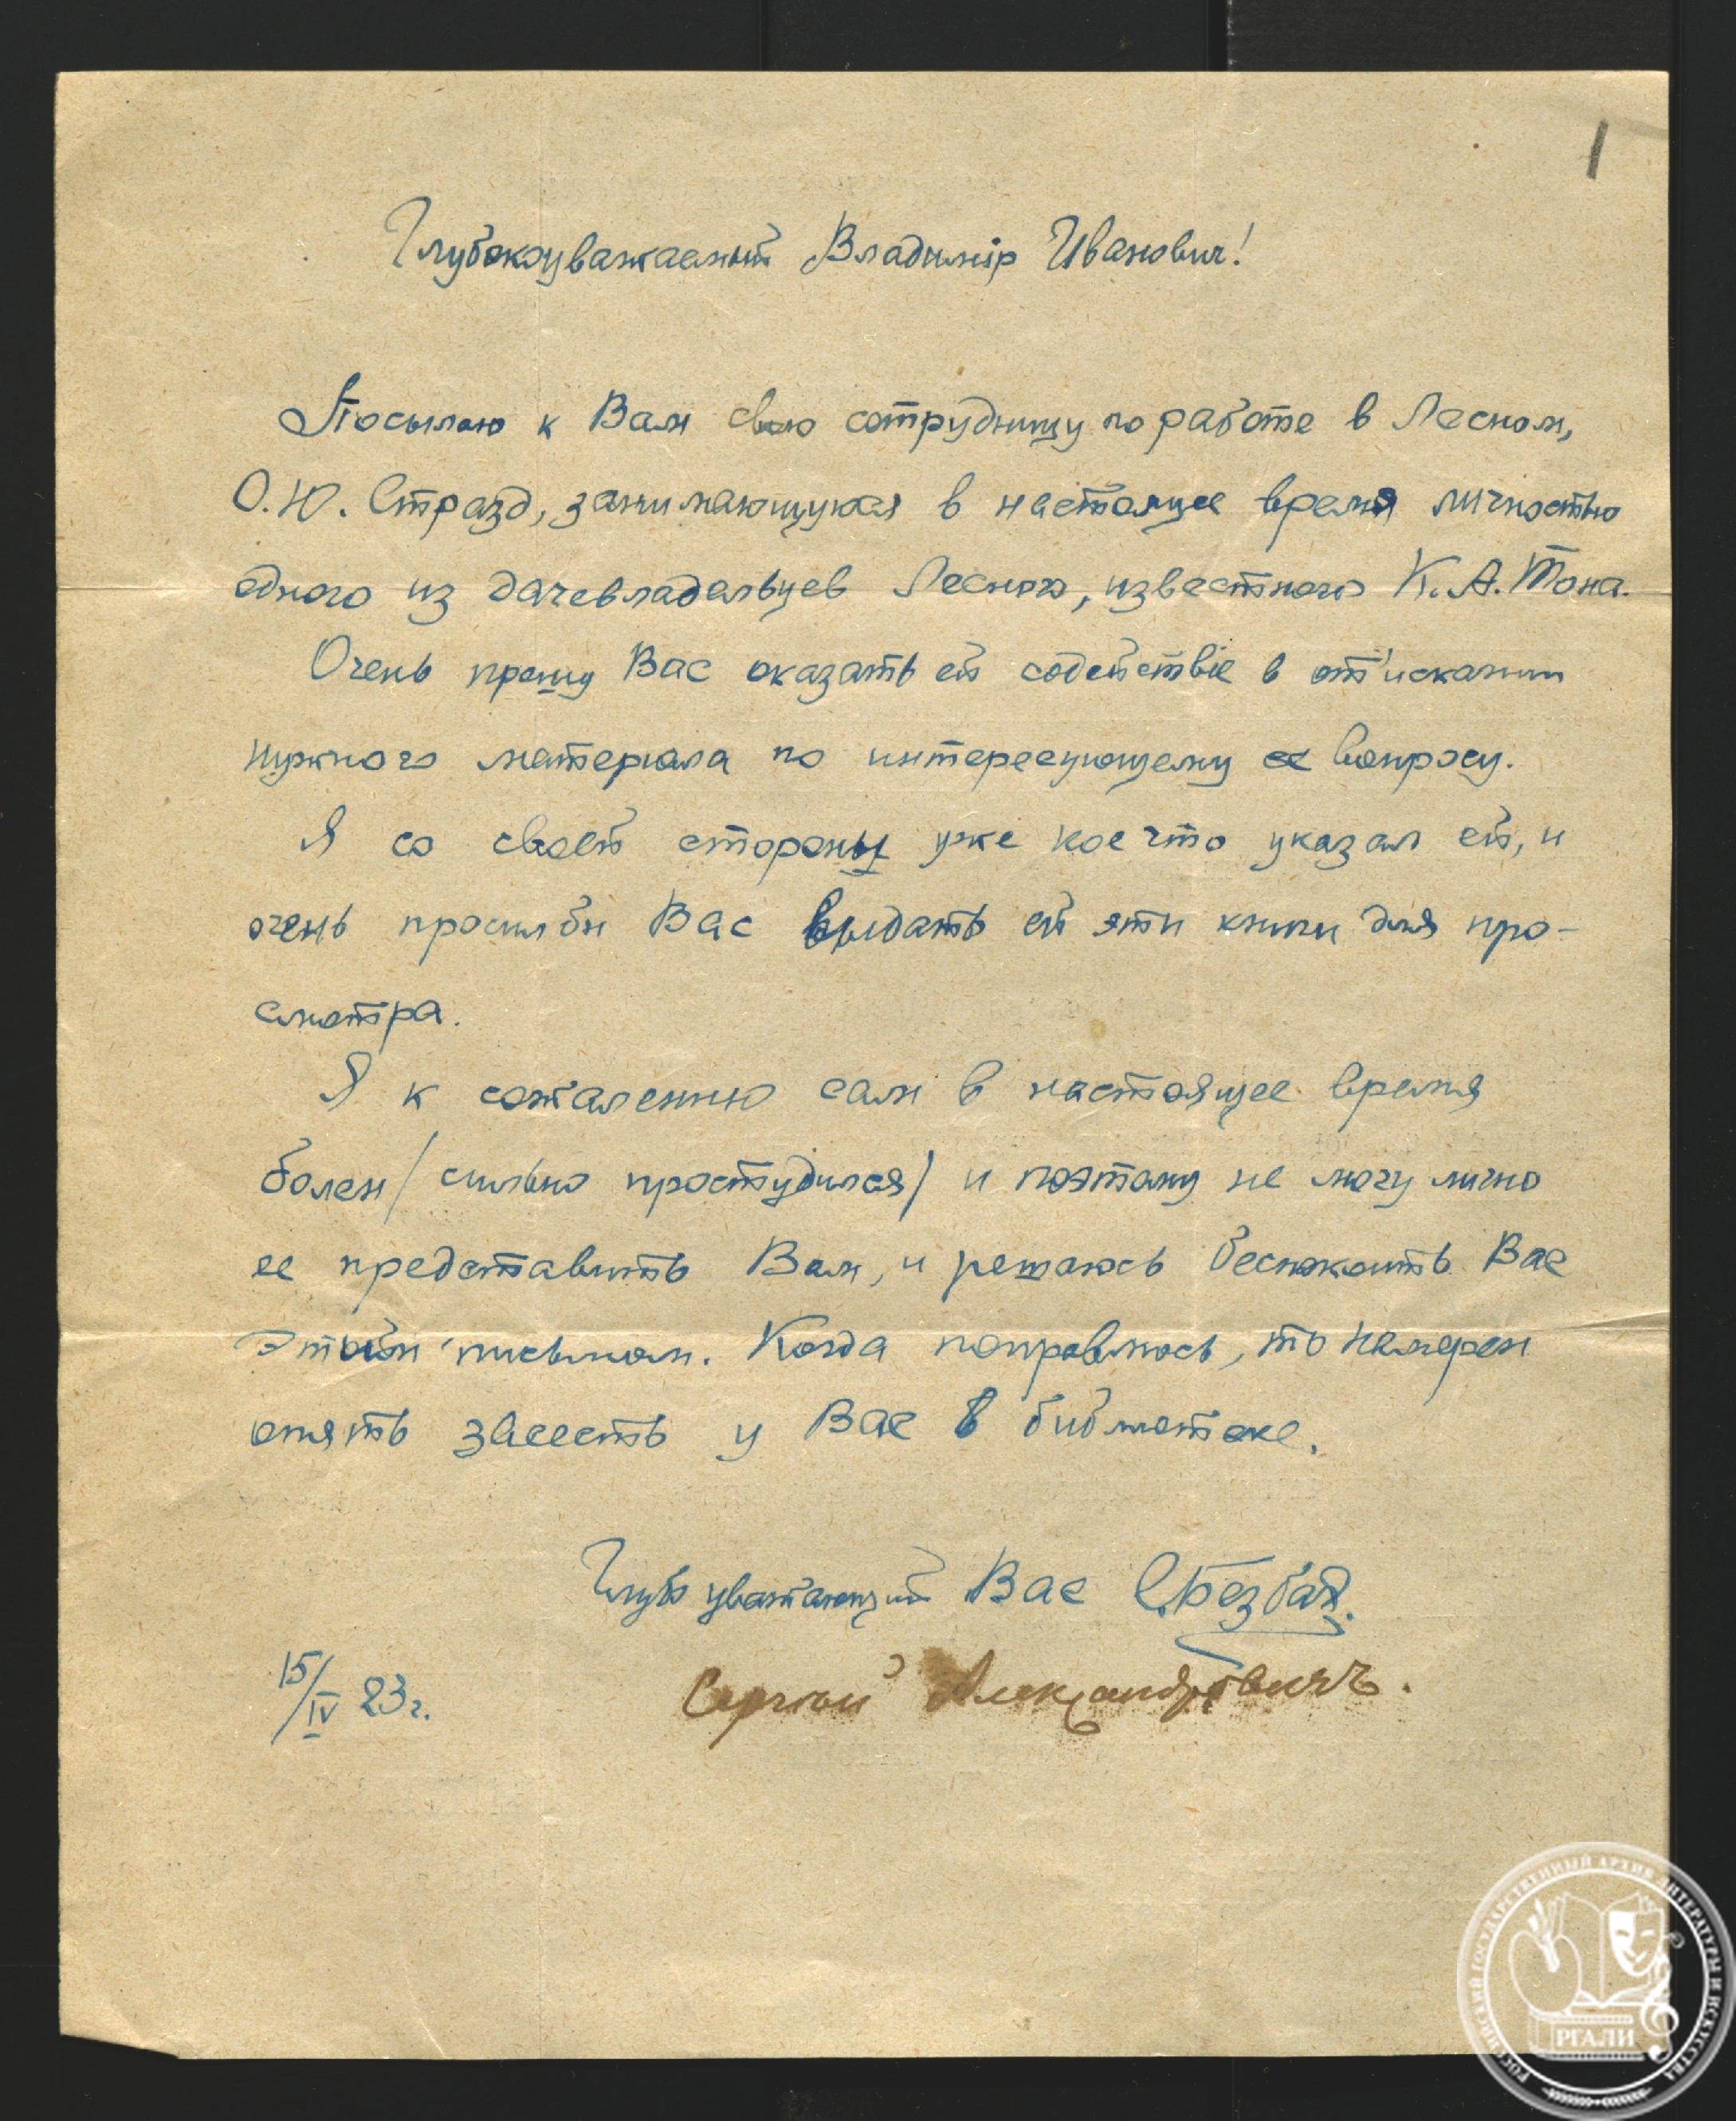 1
Глубокоуважаемый Владимiр Иванович!
Посылаю к Вам свою сотрудницу по работе в Лесном,
О.Ю. Стразд, занимающуюся в настоящее время личностью
одного из дачевладельцев Лесного, известного К.А. Тона.
Очень прошу Вас оказать ей содействiе в от'искании
нужного материала по интересующему ее вопросу.
Я со своей стороны уже кое что указал ей, и
очень просил бы Вас выдать ей эти книги для про-
смотра.
Я к сожалению сам в настоящее время
болен /сильно простудился/ и поэтому не могу лично
ее представить Вам, и решаюсь беспокоить Вас
этим письмом. Когда поправлюсь, то намерен
опять засесть у Вас в библиотеке.
Глуб уважающий Вас С.Безбах.
15/IV 23г.
Сергей Александровичъ.
РОССИЙСКИЙ ГОСУДАРСТВЕННЫЙ АРХИВ ЛИТЕРАТУРЫ И ИСКУССТВА
РГАЛИ